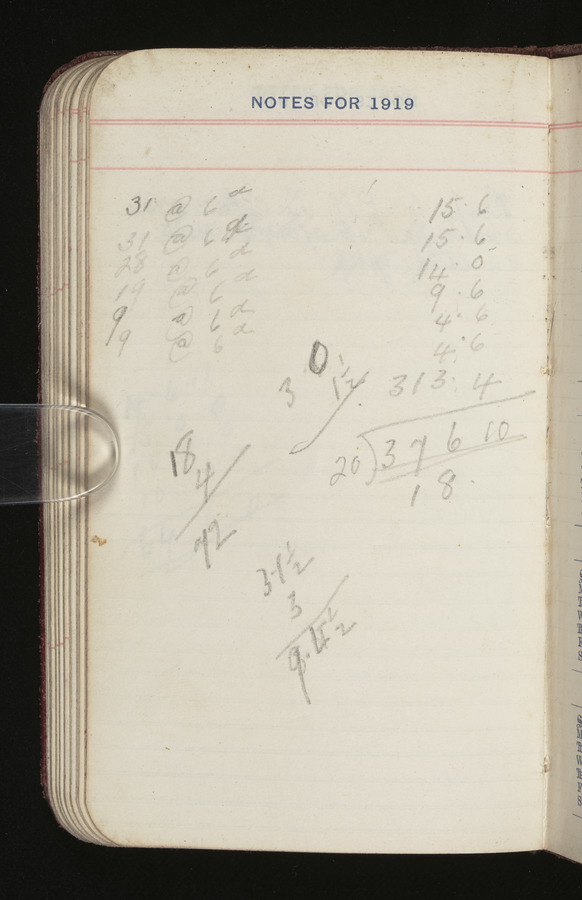 NOTES FOR 1919
31 @ 6d 15.6
31 @ 6d 15.6
28 @ 6d 14.0
19 @ 6d 9.6
9 @ 6d 4.6
9 @ 6d 4.6
313.4
3 0 1½
20)376 10
18
18
4
72
3.1½
3
9.4½